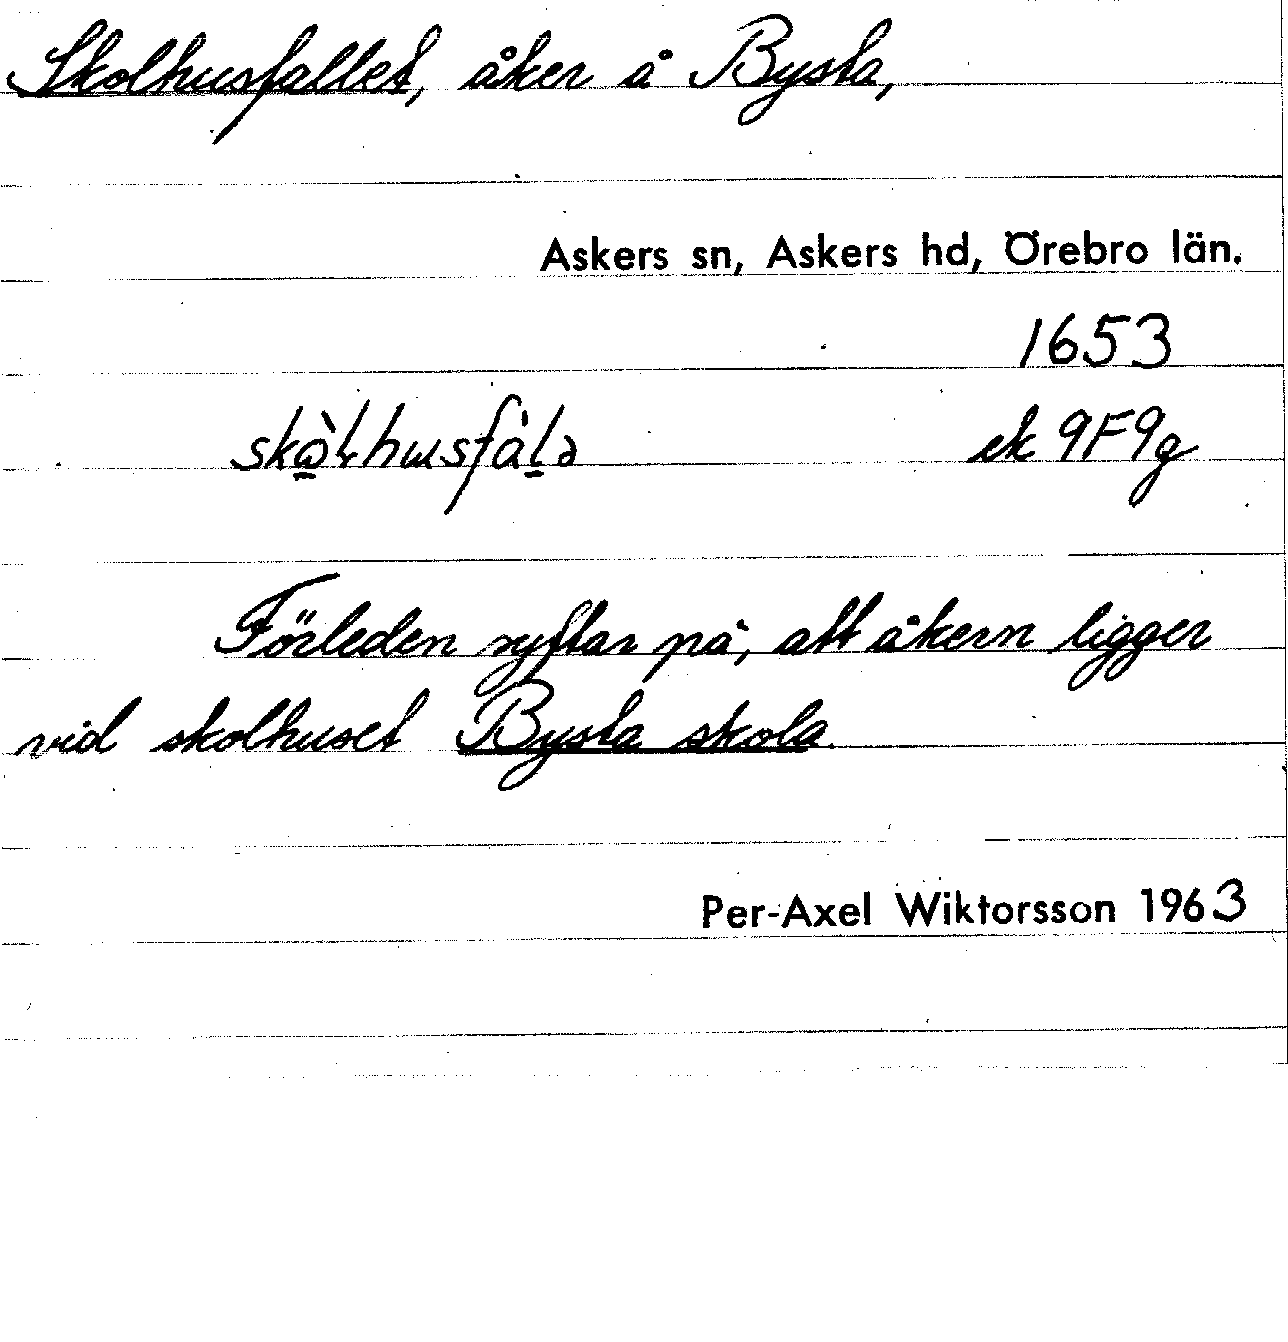 Skolhusfallet, åker å Bysta,
Askers sn, Askers hd, Örebro län.
1653
ek 9F9g
Förleden syftar på, att åkern ligger
vid skolhuset Bysta skola.
Per-Axel Wiktorsson 1963